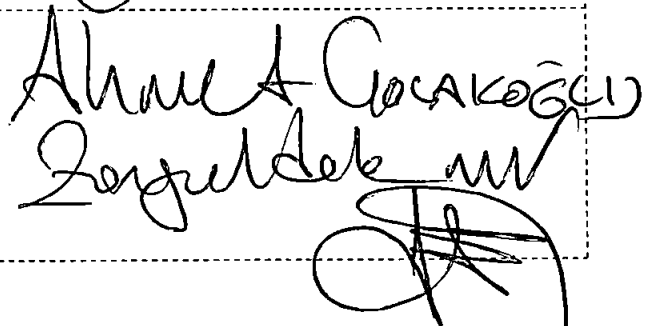 Ahmet ÇolakoĞlu
Zonguldak mv